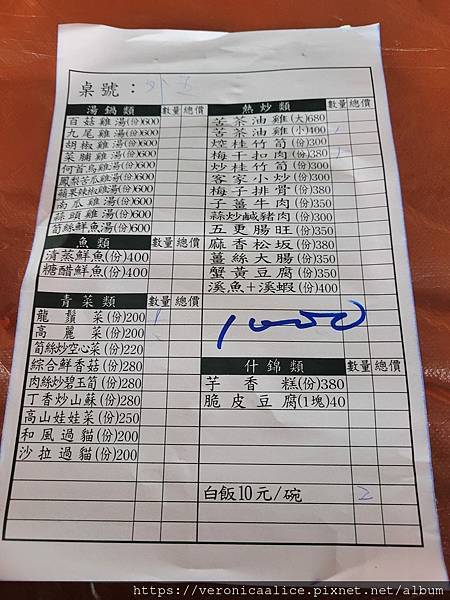 桌號：外五
湯鍋類 數量 總價
百菇雞湯(份)600
九尾雞湯(份)600
胡椒雞湯(份)600
菜脯雞湯(份)600
何首烏雞湯(份)600
鳳梨苦瓜雞湯(份)600
蘋果辣椒雞湯(份)600
南瓜雞湯(份)600
蒜頭雞湯(份)600
筍絲鮮魚湯(份)600
魚類 數量 總價
清蒸鮮魚(份)400
糖醋鮮魚(份)400
青菜類 數量 總價
龍鬚菜(份)200 1
高麗菜(份)200
筍絲炒空心菜(份)220
綜合鮮香菇(份)280
肉絲炒碧玉筍(份)280
丁香炒山蘇(份)280
高山娃娃菜(份)250
和風過貓(份)200
沙拉過貓(份)200
熱炒類 數量 總價
苦茶油雞(大)680
苦茶油雞(小)400 1
焢桂竹筍(份)300
梅干扣肉(份)380 1
炒桂竹筍(份)300
客家小炒(份)350
梅子排骨(份)380
子薑牛肉(份)350
蒜炒鹹豬肉(份)350
五更腸旺(份)350
麻香松坂(份)380
薑絲大腸(份)350
蟹黃豆腐(份)350
溪魚+溪蝦(份)400
1000
什錦類 數量 總價
芋香糕(份)380
脆皮豆腐(1塊)40
白飯10元/碗 2
https://veronicaalice.pixnet.net/album